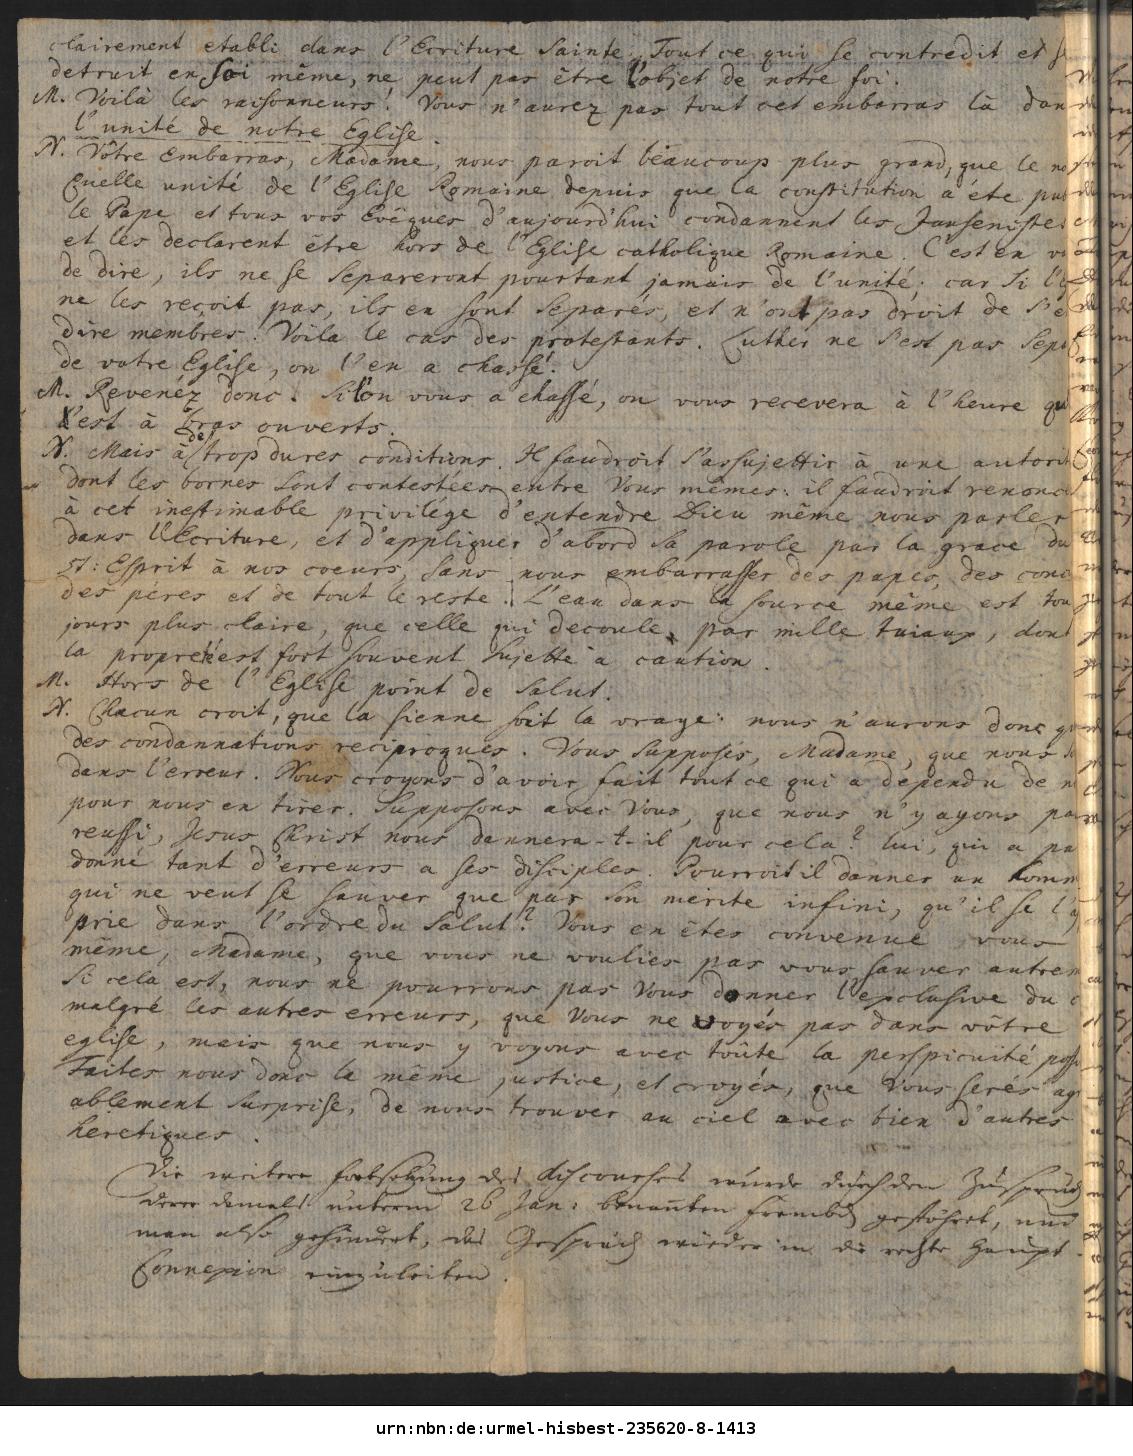 clairement etabli dans l'Ecriture Sainte. Tout ce qui se contredit et se
detruit en soi même, ne peut pas être l'objet de notre foi.
M. Voilà les raisonneurs! Vous n'aurez pas tout cet embarras là dans
l'unité de notre Eglise.
N. Vôtre embarras, Madame, nous paroit beaucoup plus grand, que le
Quelle unité de l'Eglise Romaine depuis que la constitution a éte
le Pape et tous vos Evêques d'aujourd'hui condannent les Jansenistes
et les declarent être hors de l'Eglise catholique Romaine. C'est en
de dire, ils ne se separeront pourtant jamais de l'unité; car si
ne les reçoit pas, ils en sont separés, et n'ont pas droit de
dire membres. Voila le cas des protestants. Luther ne s'est pas
de votre Eglise, on l'en a chassé.
M. Revenéz donc. Si l'on vous a chassé, on vous recevera à l'heure
est à bras ouverts.
N. Mais à de trop dures conditions. Il faudroit s'assujettir à une
dont les bornes sont contestées entre Vous mêmes: il faudroit
à cet inestimable privilége d'entendre Dieu même nous parler
dans l'Ecriture, et d'appliquer d'abord sa parole par la grace du
St: Esprit à nos coeurs, sans nous embarrasser des papes, des
des péres et de tout le reste. L'eau dans la source même est tou
jours plus claire, que celle qui decoule par mille tuiaux, dont
la propreté est fort souvent sujette à caution.
M. Hors de l'Eglise point de Salut.
N. Chacun croit, que la sienne soit la vraye: nous n'aurons donc
des condannations reciproques. Vous supposés, Madame, que nous
dans l'erreur. Nous croyons d'avoir fait tout ce qui a dependu de
pour nous en tirer. Supposons avec Vous, que nous n'y ayons
reussi, Jesus Christ nous dannera-t-il pour cela? lui, qui a
donné tant d'erreurs a ses disciples. Pourroit il danner un
qui ne veut se sauver que par son merite infini, qu'il se
prie dans l'ordre du Salut? Vous en êtes convenue vous
même, Madame, que vous ne voulies pas vous sauver
Si cela est, nous ne pourrons pas Vous donner l'exclusive du
malgré les autres erreurs, que Vous ne voyés pas dans vôtre
eglise, mais que nous y voyons avec toûte la perspicuité
Faites nous donc la même justice, et croyés, que Vous serés
ablement surprise, de nous trouver au ciel avec bien d'autres
heretiques.
Die weitere fortsetzung des discourses wurde durch den
unterm 26 Jan: benañten frembden gestöhret, und
man also gehindert, das Gespräch wieder in die rechte Haupt
Connexion einzuleiten.
urn:nbn:de:urmel-hisbest-235620-8-1413